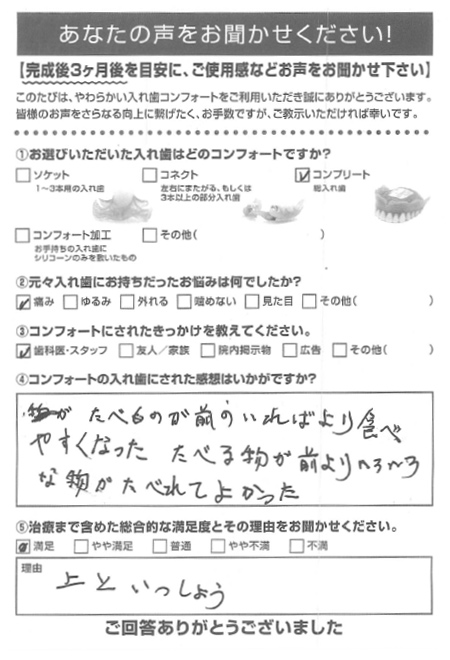 あなたの声をお聞かせください!
【完成後3ヶ月後を目安に、ご使用感などお声をお聞かせ下さい】
このたびは、やわらかい入れ歯コンフォートをご利用いただき誠にありがとうございます。
皆様のお声をさらなる向上に繋げたく、お手数ですが、ご教示いただければ幸いです。
①お選びいただいた入れ歯はどのコンフォートですか?
□ソケット □コネクト ☑コンプリート
1～3本用の入れ歯 左右にまたがる、もしくは 総入れ歯
3本以上の部分入れ歯
□コンフォート加工 □その他( )
お手持ちの入れ歯に
シリコーンのみを敷いたもの
②元々入れ歯にお持ちだったお悩みは何でしたか?
☑痛み □ゆるみ □外れる □噛めない □見た目 □その他( )
③コンフォートにされたきっかけを教えてください。
☑歯科医・スタッフ □友人／家族 □院内掲示物 □広告 □その他( )
④コンフォートの入れ歯にされた感想はいかがですか?
が たべものが前のいればより食べ
やすくなった たべる物が前よりいろいろ
な物がたべれてよかった
⑤治療まで含めた総合的な満足度とその理由をお聞かせください。
☑満足 □やや満足 □普通 □やや不満 □不満
理由
上といっしょう
ご回答ありがとうございました